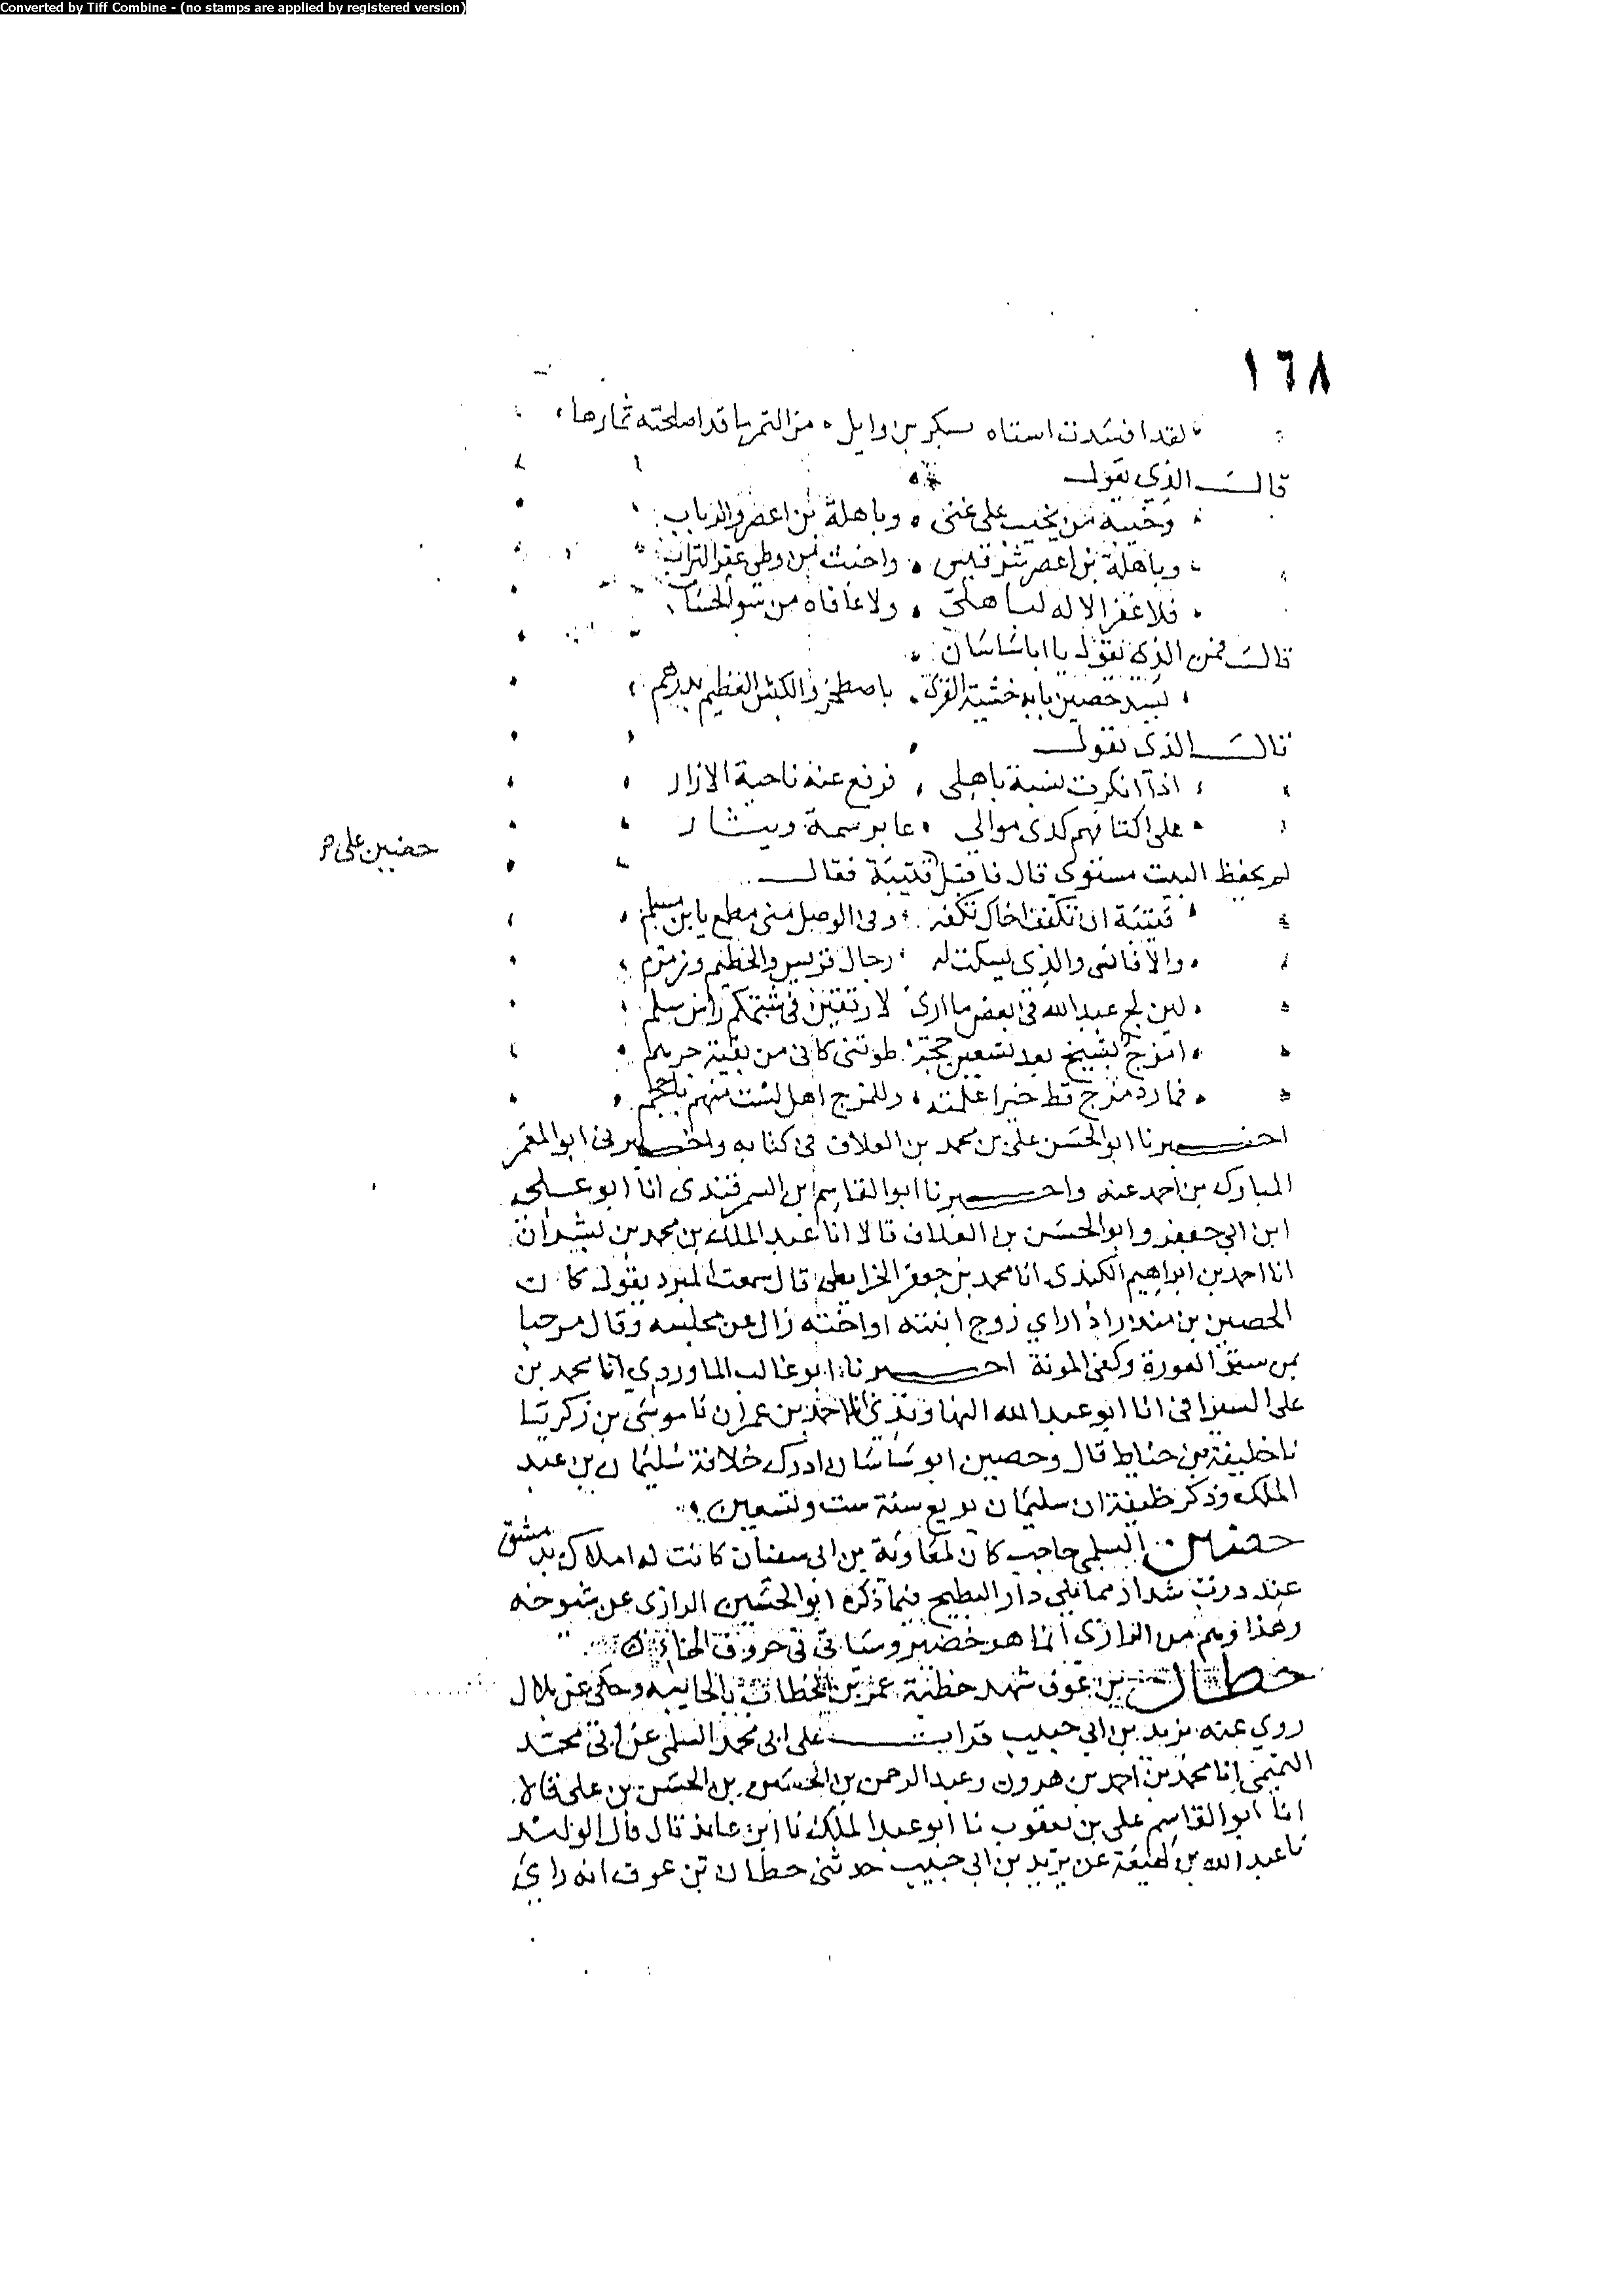 Converted by Tiff Combine - (no stamps are applied by registered version)
١٦٨
لقد افسدت استاه بكر بن وايل من التمر ما قد اصلحته ثمارها
قال الذي يقول
وخيبة من يخيب على غنى وباهلة بن اعصر والرباب
وباهلة بن اعصر شر قيس واخبث من وطى عفر التراب
فلا غفر الاله لباهلى ولا عافاه من سو الحساب
قال فمن الذي يقول يا ابا ساسان
يسد حصين بابه خشية القرى باصطخر والكبش العظيم بدرهم
قال الذى يقول
اذا انكرت نسبة باهلى فرفع عنه ناحية الازار
على اكتافهم كدى موالى عابر سمة وبيشار
حضين على م
لم يحفظ البيت مستوى قال فاقبل قتيبة فقال
قتيبة ان تكفف اخاك تكفه وفى الوصل منى مطمع يا بن مسلم
والا فانى والذى نسكت له رجال قريش والحطيم وزمزم
لين لج عبد الله فى بعض ما ارى لارتقين فى شتمكم راس سلم
امزح بشيخ بعد تسعين حجة طوتنى كانى من بقية جرهم
فما رد مزح قط خيرا علمته وللمزح اهل لست منهم فاحجم
اخبرنا ابو الحسن على بن محمد بن العلاف فى كتابه واخبرنى ابو المعمر
المبارك بن احمد عنه واخبرنا ابو القاسم ابن السمرقندى انا ابو على
ابن ابي جعفر وابو الحسن بن العلاف قالا انا عبد الملك بن محمد بن بشران
انا احمد بن ابراهيم الكندى انا محمد بن جعفر الخرايطى قال سمعت المبرد يقول كان
الحصين بن منذر اذا راي زوج ابنته او اخته زال عن مجلسه وقال مرحبا
بمن ستر العورة وكفى المونة اخبرنا ابو غالب الماوردي انا محمد بن
على السيرافى انا ابو عبد الله النهاوندي انا احمد بن عمران نا موسى بن زكريا
نا خليفة بن خياط قال وحصين ابو ساسان ادرك خلافة سليمان بن عبد
الملك وذكر خليفة ان سليمان بويع سنة ست وتسعين
حصين السلمى حاجب كان لمعاوية بن ابى سفيان كانت له املاك بدمشق
عند درب شداد مما يلى دار البطيح فيما ذكره ابو الحسين الرازى عن شيوخه
وهذا وهم من الرازى انما هو خضير وسياتى فى حروف الخاء
حطان بن عوف شهد خطبة عمر بن الخطاب بالجابيه وحكى عن بلال
روي عنه يزيد بن ابي حبيب قرات على ابى محمد السلمى عن ابى محمد
التميمى انا محمد بن احمد بن هرون وعبد الرحمن بن الحسين بن الحسن بن على قالا
انا ابو القاسم على بن يعقوب نا ابو عبد الملك نا ابن عايذ قال قال الوليد
نا عبد الله بن لهيعة عن يزيد بن ابي حبيب حدثنى حطان بن عوف انه راي